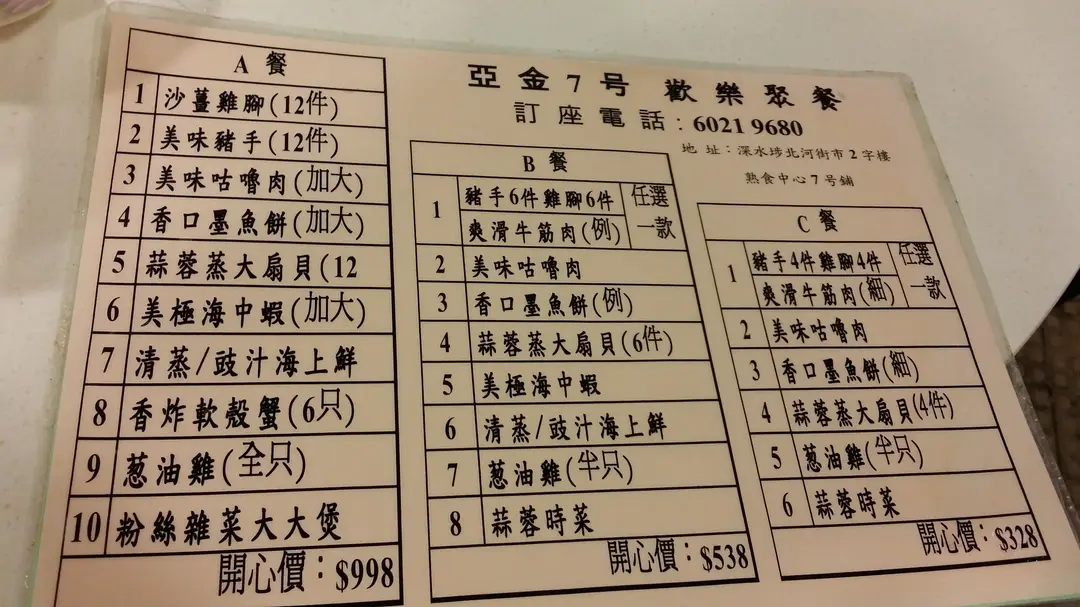 亞金7号 歡樂聚餐
訂座電話：6021 9680
地址：深水埗北河街市2字樓
熟食中心7号鋪
A 餐
1 沙薑雞腳(12件)
2 美味豬手(12件)
3 美味咕嚕肉(加大)
4 香口墨魚餅(加大)
5 蒜蓉蒸大扇貝(12
6 美極海中蝦(加大)
7 清蒸/豉汁海上鮮
8 香炸軟殼蟹(6只)
9 葱油雞(全只)
10 粉絲雜菜大大煲
開心價：$998
B 餐
1 豬手6件雞腳6件 任選
爽滑牛筋肉(例) 一款
2 美味咕嚕肉
3 香口墨魚餅(例)
4 蒜蓉蒸大扇貝(6件)
5 美極海中蝦
6 清蒸/豉汁海上鮮
7 葱油雞(半只)
8 蒜蓉時菜
開心價：$538
C 餐
1 豬手4件雞腳4件 任選
爽滑牛筋肉(細) 一款
2 美味咕嚕肉
3 香口墨魚餅(細)
4 蒜蓉蒸大扇貝(4件)
5 葱油雞(半只)
6 蒜蓉時菜
開心價：$328